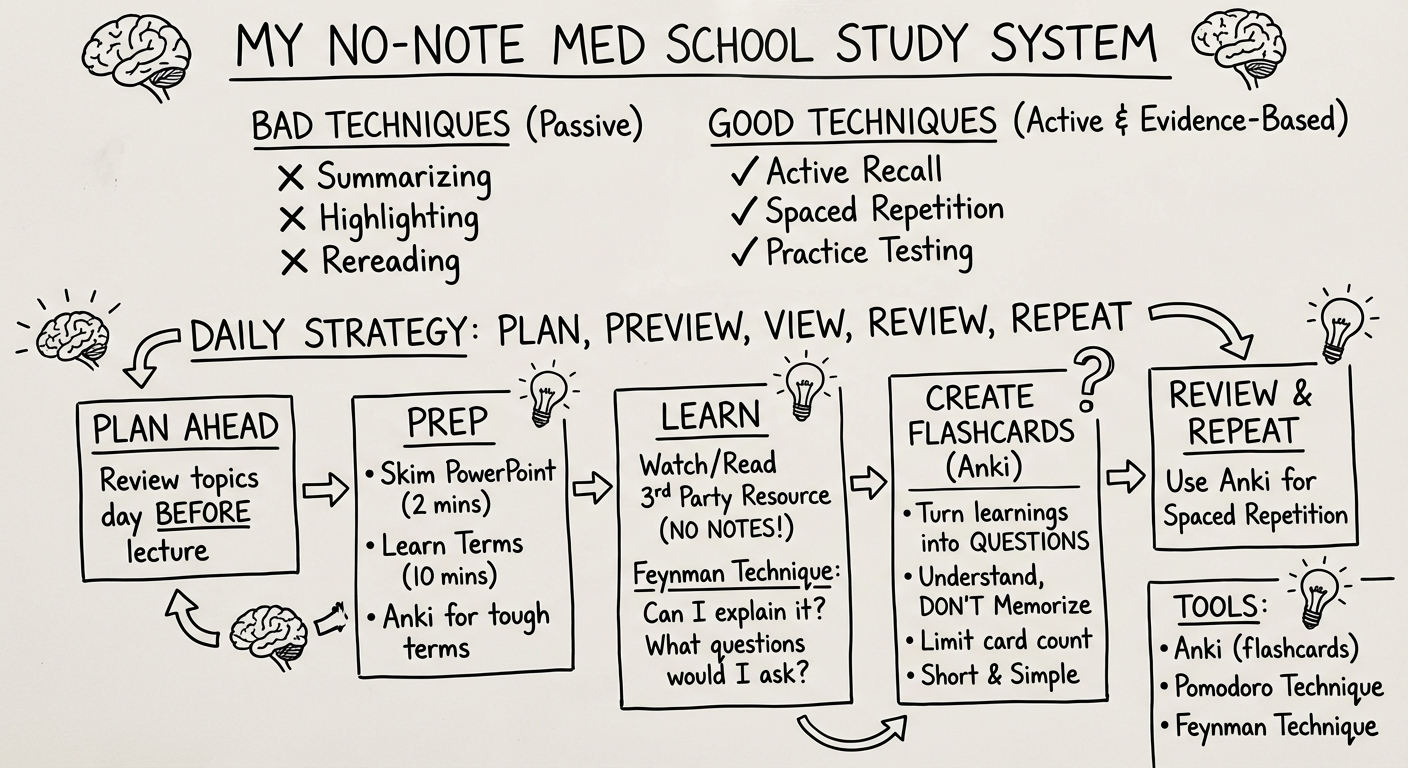 MY NO-NOTE MED SCHOOL STUDY SYSTEM
BAD TECHNIQUES (Passive)
✗ Summarizing
✗ Highlighting
✗ Rereading
GOOD TECHNIQUES (Active & Evidence-Based)
✓ Active Recall
✓ Spaced Repetition
✓ Practice Testing
DAILY STRATEGY: PLAN, PREVIEW, VIEW, REVIEW, REPEAT
PLAN AHEAD
Review topics
day BEFORE
lecture
PREP
• Skim PowerPoint
(2 mins)
• Learn Terms
(10 mins)
• Anki for tough
terms
LEARN
Watch/Read
3rd Party Resource
(NO NOTES!)
Feynman Technique:
Can I explain it?
What questions
would I ask?
?
CREATE
FLASHCARDS
(Anki)
• Turn learnings
into QUESTIONS
• Understand,
DON'T Memorize
• Limit card count
• Short & Simple
REVIEW &
REPEAT
Use Anki for
Spaced Repetition
TOOLS:
• Anki (flashcards)
• Pomodoro Technique
• Feynman Technique